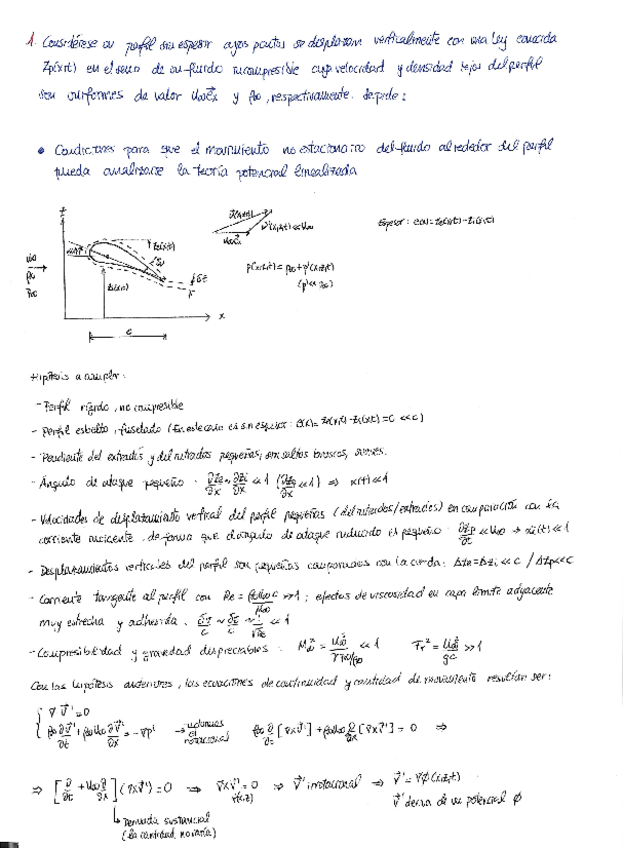 1. Considérese un perfil sin espesor cuyos puntos se desplazan verticalmente con una ley conocida
Zp(x,t) en el seno de un fluido incompresible cuya velocidad y densidad lejos del perfil
son uniformes de valor U∞e⃗x y ρ∞, respectivamente. Se pide:
• Condiciones para que el movimiento no estacionario del fluido alrededor del perfil
pueda analizarse la teoría potencial linealizada
z
U∞
ρ∞
P∞
x
c
v⃗'(x,z,t) ≪ U∞
U∞e⃗x
p(x,z,t) = p∞ + p'(x,z,t)
(p' ≪ p∞)
Espesor: e(x) = Ze(x,t) - Zi(x,t)
Hipótesis a cumplir:
- Perfil rígido, no compresible
- Perfil esbelto, fuselado (En este caso es sin espesor: e(x) = Ze(x,t) - Zi(x,t) = 0 ≪ c)
- Pendiente del extradós y del intradós pequeñas, sin saltos bruscos, suaves.
- Ángulo de ataque pequeño. ∂Ze/∂x ~ ∂Zi/∂x ≪ 1 (∂Zp/∂x ≪ 1) ⇒ α(t) ≪ 1
- Velocidades de desplazamiento vertical del perfil pequeñas (del intradós/extradós) en comparación con la
corriente incidente, de forma que el ángulo de ataque inducido es pequeño. ∂Zp/∂t ≪ U∞ → αi(t) ≪ 1
- Desplazamientos verticales del perfil son pequeños comparados con la cuerda: ΔZe = ΔZi ≪ c / ΔZp ≪ c
- Corriente tangente al perfil con Re = ρ∞U∞c/μ∞ ≫ 1; efectos de viscosidad en capa límite adyacente
muy estrecha y adherida. δ/c ~ δε/c ~ 1/√Re ≪ 1
- Compresibilidad y gravedad despreciables. M∞² = U∞²/(γp∞/ρ∞) ≪ 1 Fr² = U∞²/gc ≫ 1
Con las hipótesis anteriores, las ecuaciones de continuidad y cantidad de movimiento resultan ser:
∇v⃗' = 0
ρ∞ ∂v⃗'/∂t + ρ∞U∞ ∂v⃗'/∂x = -∇p' → el rotacional ρ∞ ∂/∂t [∇×v⃗'] + ρ∞U∞ ∂/∂x [∇×v⃗'] = 0 ⇒
⇒ [∂/∂t + U∞ ∂/∂x] (∇×v⃗') = 0 ⇒ ∇×v⃗' = 0 ∀(x,z) ⇒ v⃗' irrotacional ⇒ v⃗' = ∇φ(x,z,t)
v⃗' deriva de un potencial φ
Derivada sustancial
(la cantidad no varía)